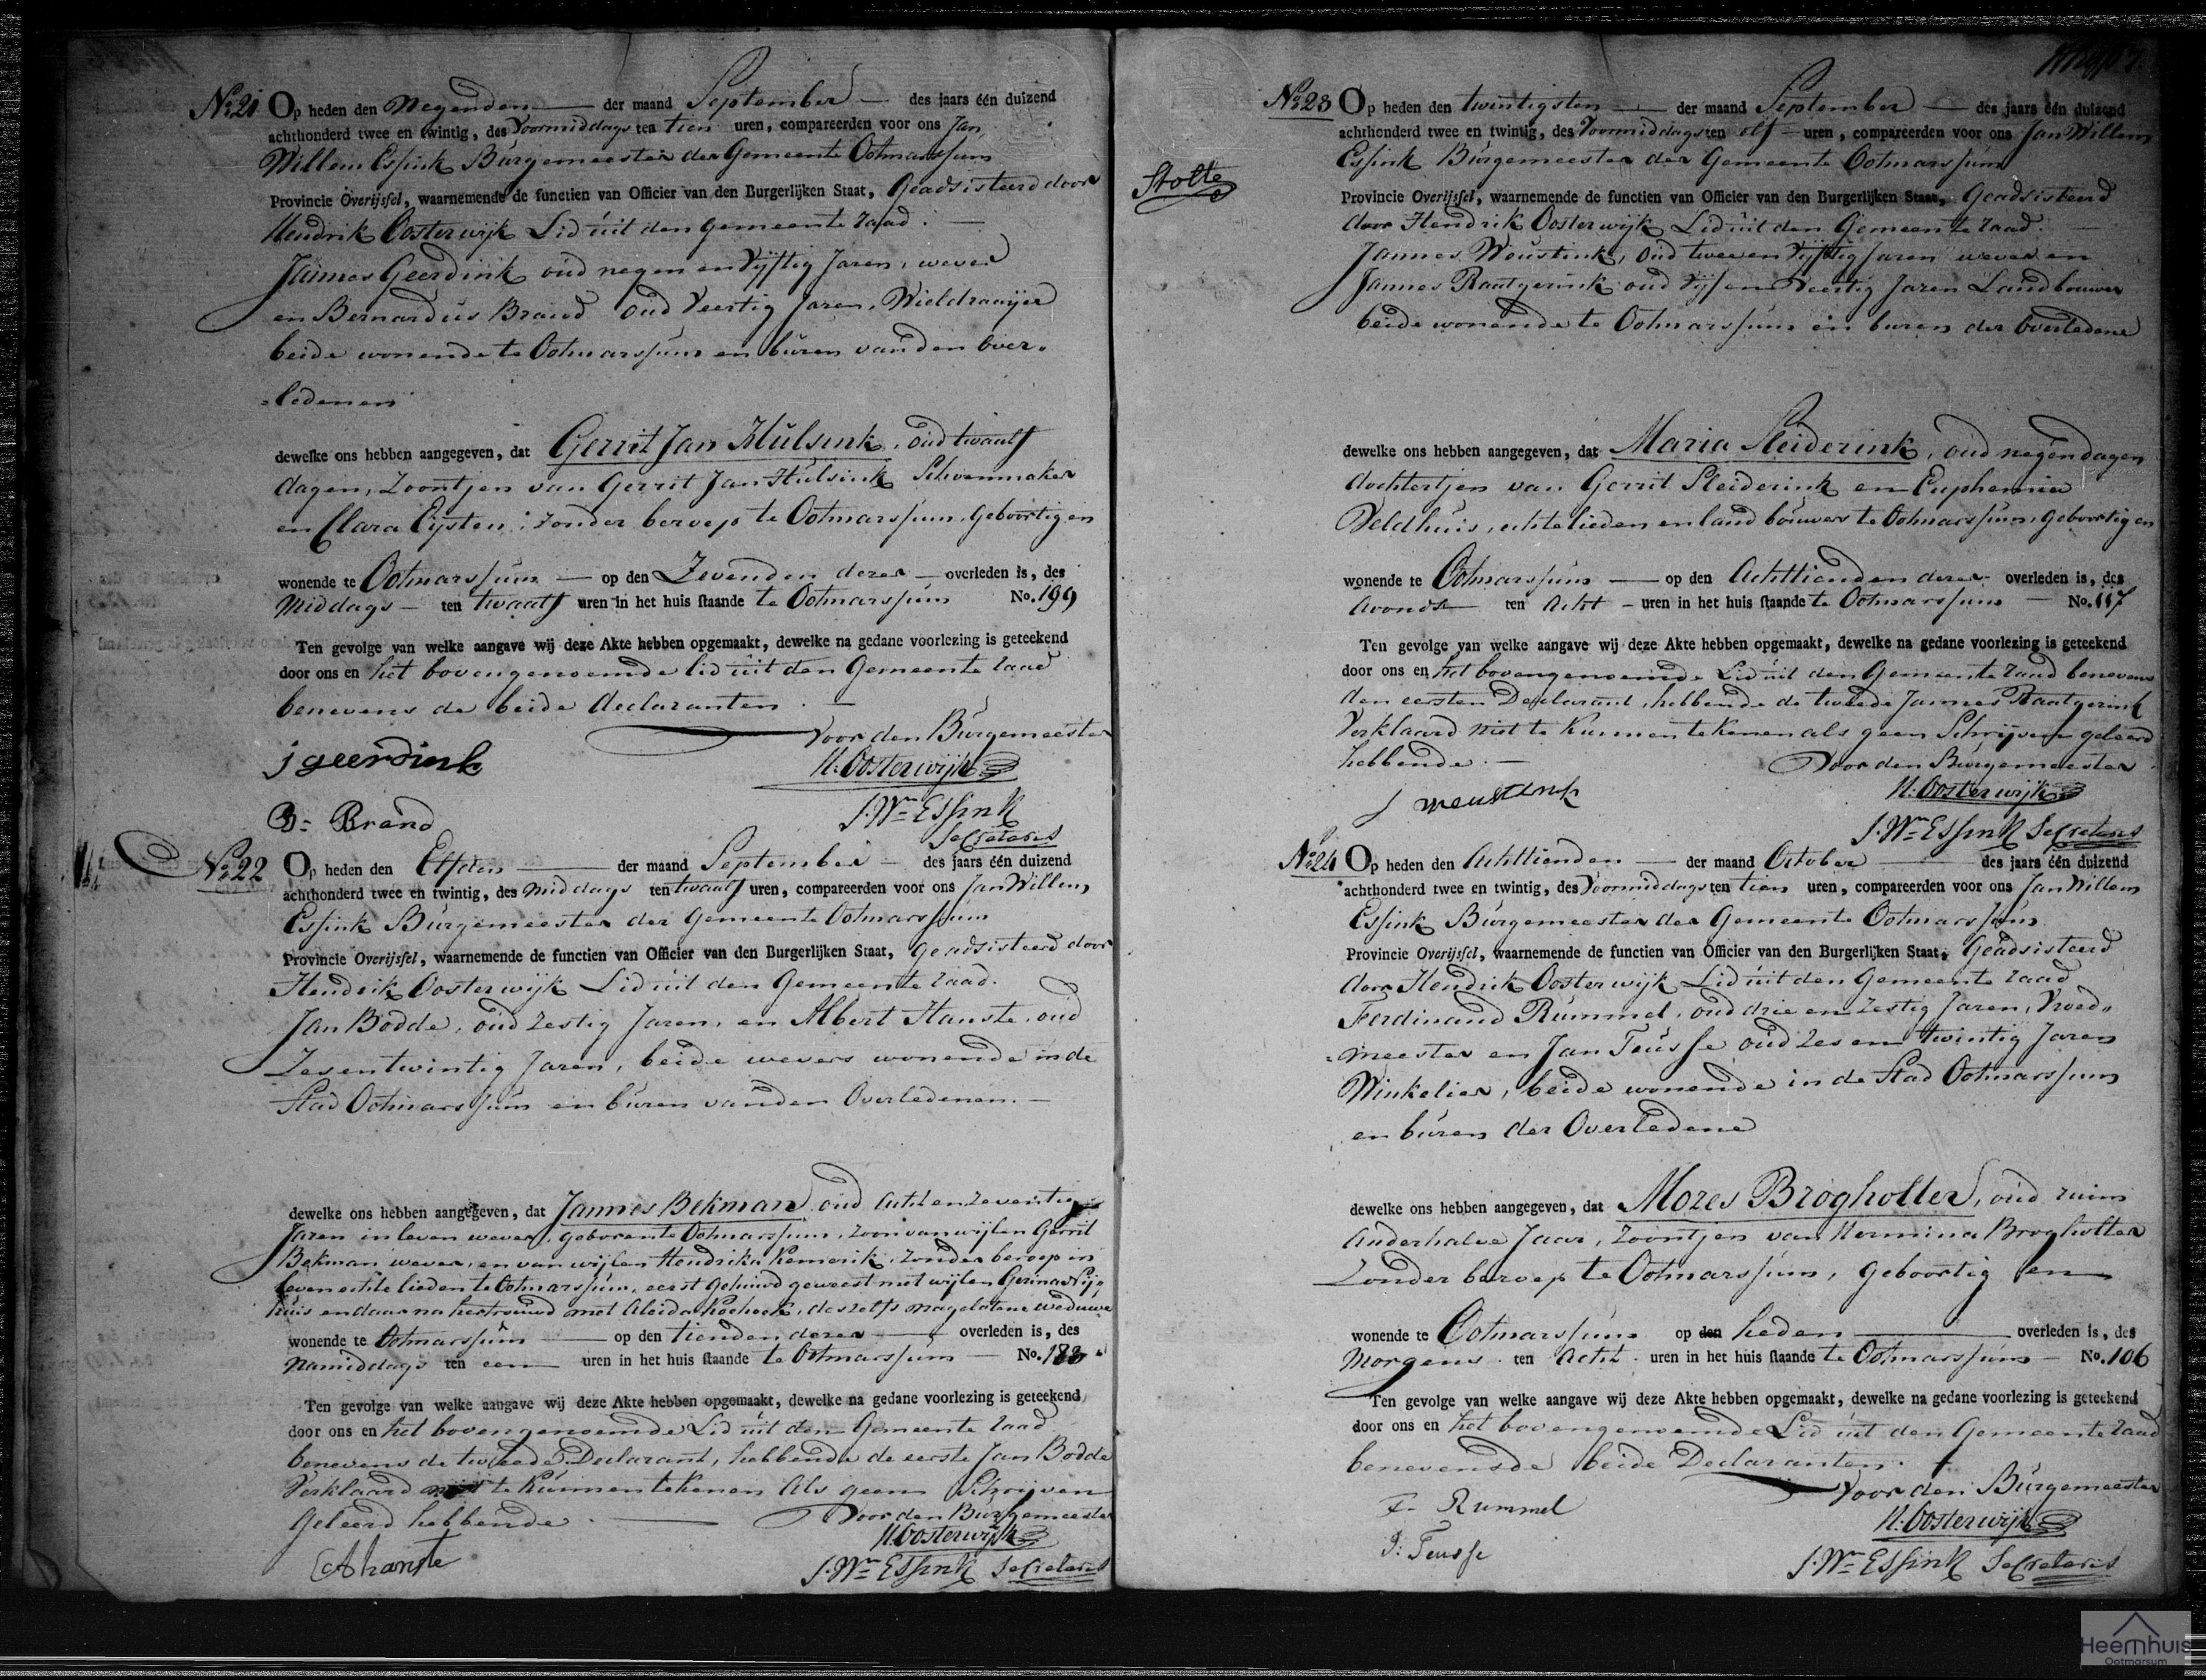 No 21 Op heden den Negenden der maand September des jaars één duizend
achthonderd twee en twintig, des Voormiddags ten tien uren, compareerden voor ons Jan
Willem Essink Burgemeester der Gemeente Ootmarssum
Provincie Overijssel, waarnemende de functien van Officier van den Burgerlijken Staat, Geadsisteerd door
Hendrik Oosterwijk Lid uit den gemeente raad.
Jannes Geerdink oud negen en Vijftig Jaren, wever
en Bernardus Brand oud Veertig Jaren, Wieldraaijer
beide wonende te Ootmarssum en buren van den over-
=ledenen
dewelke ons hebben aangegeven, dat Gerrit Jan Hulsink, oud twaalf
dagen, Zoontjen van Gerrit Jan Hulsink Schoenmaker
en Clara Eijsten, zonder beroep te Ootmarssum, geboortig en
wonende te Ootmarssum op den Zevenden dezer overleden is, des
Middags ten twaalf uren in het huis staande te Ootmarssum No. 199
Ten gevolge van welke aangave wij deze Akte hebben opgemaakt, dewelke na gedane voorlezing is geteekend
door ons en het bovengenoemde lid uit den Gemeente raad
benevens de beide declaranten.
Voor den Burgemeester
j geerdink
H: Oosterwijk
J. Wm Essink
B: Brand
Secretaris
No 22 Op heden den Elfden der maand September des jaars één duizend
achthonderd twee en twintig, des middags ten twaalf uren, compareerden voor ons Jan Willem
Essink Burgemeester der Gemeente Ootmarssum
Provincie Overijssel, waarnemende de functien van Officier van den Burgerlijken Staat, geadsisteerd door
Hendrik Oosterwijk Lid uit den Gemeente raad.
Jan Bodde, oud zestig Jaren, en Albert Hanste oud
Zesentwintig Jaren, beide wevers wonende in de
Stad Ootmarssum en buren van den Overledenen.
dewelke ons hebben aangegeven, dat Jannes Bekman oud Achtenzeventig
Jaren in leven wever, geboren te Ootmarssum, Zoon van wijlen Gerrit
Bekman wever, en van wijlen Hendrika Kemerik, zonder beroep in
leven echte lieden te Ootmarssum, eerst gehuwd geweest met wijlen Gerina
huis en daarna hertrouwd met Aleida deszelfs nagelatene weduwe
wonende te Ootmarssum op den tienden dezer overleden is, des
Namiddags ten een uren in het huis staande te Ootmarssum No. 188
Ten gevolge van welke aangave wij deze Akte hebben opgemaakt, dewelke na gedane voorlezing is geteekend
door ons en het bovengenoemde Lid uit den Gemeente raad
benevens de tweede Declarant, hebbende de eerste Jan Bodde
Verklaard niet te kunnen tekenen Als geen Schrijven
Geleerd hebbende.
Voor den Burgemeester
H: Oosterwijk
A hanste
J. Wm Essink Secretaris
No 23 Op heden den twintigsten der maand September des jaars één duizend
achthonderd twee en twintig, des Voormiddags ten elf uren, compareerden voor ons Jan Willem
Essink Burgemeester der Gemeente Ootmarssum
Stolte
Provincie Overijssel, waarnemende de functien van Officier van den Burgerlijken Staat, Geadsisteerd
door Hendrik Oosterwijk Lid uit den Gemeente raad.
Jannes Weustink, oud twee en Vijftig Jaren wever en
Jannes Raatgerink oud Vijf en Veertig Jaren Landbouwer
beide wonende te Ootmarssum en buren der Overledene
dewelke ons hebben aangegeven, dat Maria Sleiderink, oud negen dagen
dochtertjen van Gerrit Sleiderink en Euphemia
Veldhuis, echtelieden en landbouwers te Ootmarssum, geboortig en
wonende te Ootmarssum op den Achttienden dezer overleden is, des
Avonds ten Acht uren in het huis staande te Ootmarssum No. 117
Ten gevolge van welke aangave wij deze Akte hebben opgemaakt, dewelke na gedane voorlezing is geteekend
door ons en het bovengenoemde Lid uit den Gemeente raad benevens
den eersten Declarant, hebbende de tweede Jannes Raatgerink
Verklaard niet te kunnen tekenen als geen Schrijven geleerd
hebbende.
Voor den Burgemeester
J weustink
H: Oosterwijk
J. Wm Essink Secretaris
No 24 Op heden den Achttienden der maand October des jaars één duizend
achthonderd twee en twintig, des Voormiddags ten tien uren, compareerden voor ons Jan Willem
Essink Burgemeester der Gemeente Ootmarssum
Provincie Overijssel, waarnemende de functien van Officier van den Burgerlijken Staat, Geadsisteerd
door Hendrik Oosterwijk Lid uit den Gemeente raad
Ferdinand Rummel, oud drie en zestig Jaren, Vroed-
=meester en Jan Teusse oud zes en twintig Jaren
Winkelier, beide wonende in de Stad Ootmarssum
en buren der Overledene
dewelke ons hebben aangegeven, dat Mozes Brogholter, oud ruim
Anderhalve Jaar, Zoontjen van Hermina Brogholter
Zonder beroep te Ootmarssum, geboortig en
wonende te Ootmarssum op den heden overleden is, des
Morgens ten Acht uren in het huis staande te Ootmarssum No. 106
Ten gevolge van welke aangave wij deze Akte hebben opgemaakt, dewelke na gedane voorlezing is geteekend
door ons en het bovengenoemde Lid uit den Gemeente raad
benevens de beide Declaranten.
Voor den Burgemeester
F. Rummel
H: Oosterwijk
J: Teusse
J. Wm Essink Secretaris
Heemhuis
Ootmarsum